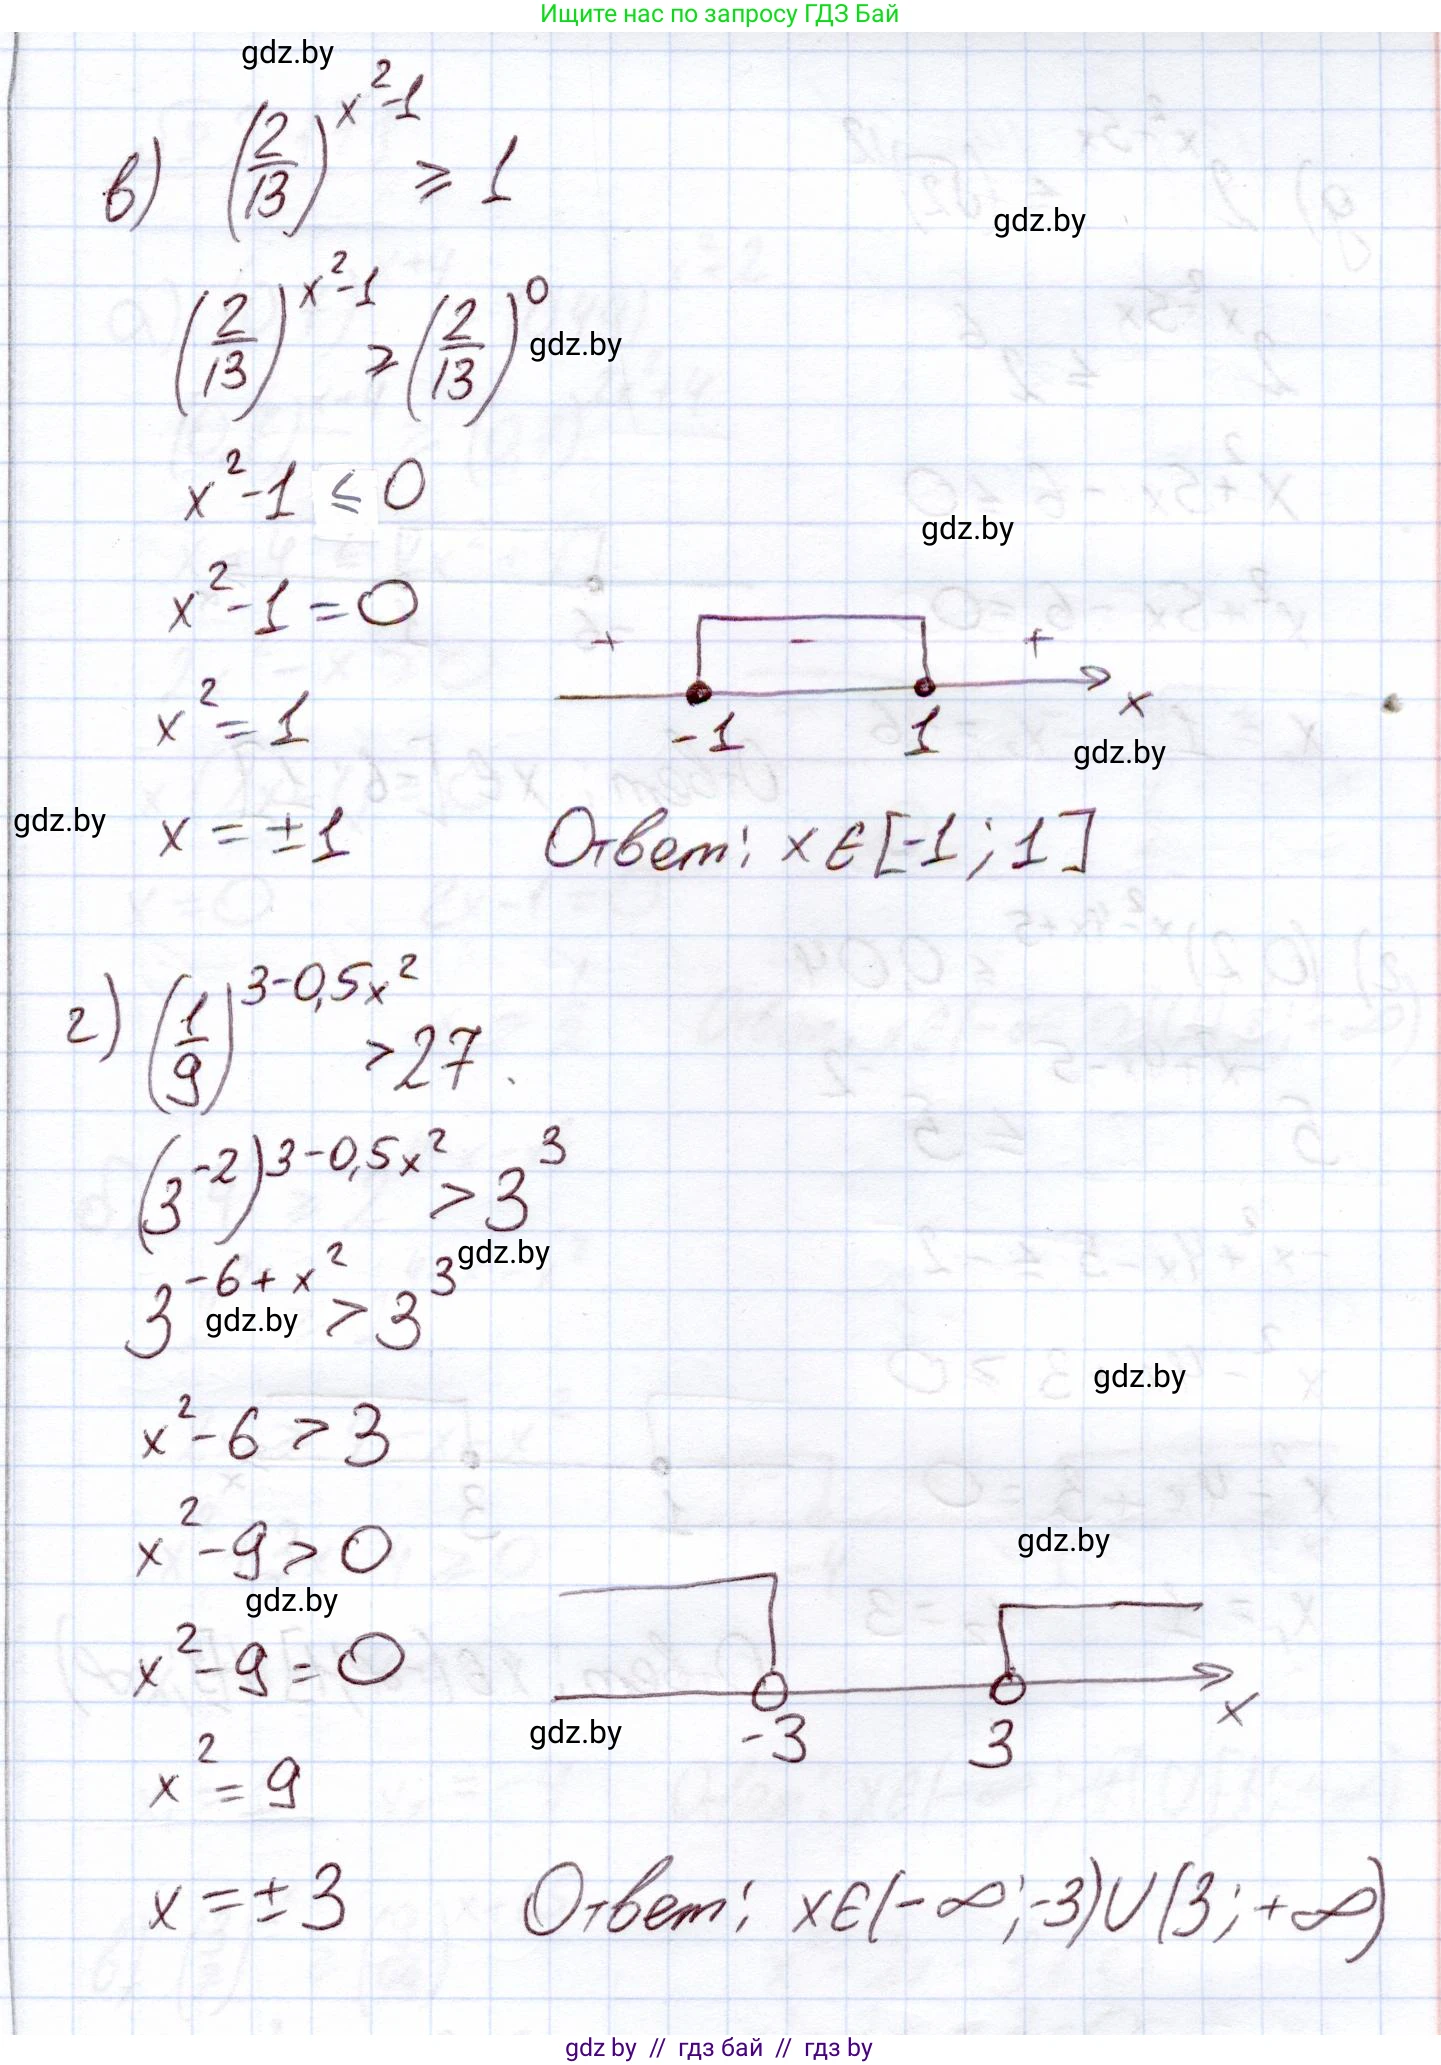 Ищите нас по запросу ГДЗ Бай
gdz.by
в) (2/13)^(x²-1) ≥ 1
gdz.by
(2/13)^(x²-1) ≥ (2/13)^0
gdz.by
x²-1 ≤ 0
gdz.by
x²-1 = 0
+ - +
x² = 1
-1 1 x
gdz.by
gdz.by
x = ±1
Ответ: x∈[-1; 1]
г) (1/9)^(3-0,5x²) > 27
(3^-2)^(3-0,5x²) > 3^3
gdz.by
3^(-6+x²) > 3^3
gdz.by
gdz.by
x²-6 > 3
x²-9 > 0
gdz.by
gdz.by
x²-9 = 0
gdz.by
-3 3 x
x² = 9
x = ±3
Ответ: x∈(-∞;-3)∪(3;+∞)
gdz.by // гдз бай // гдз by